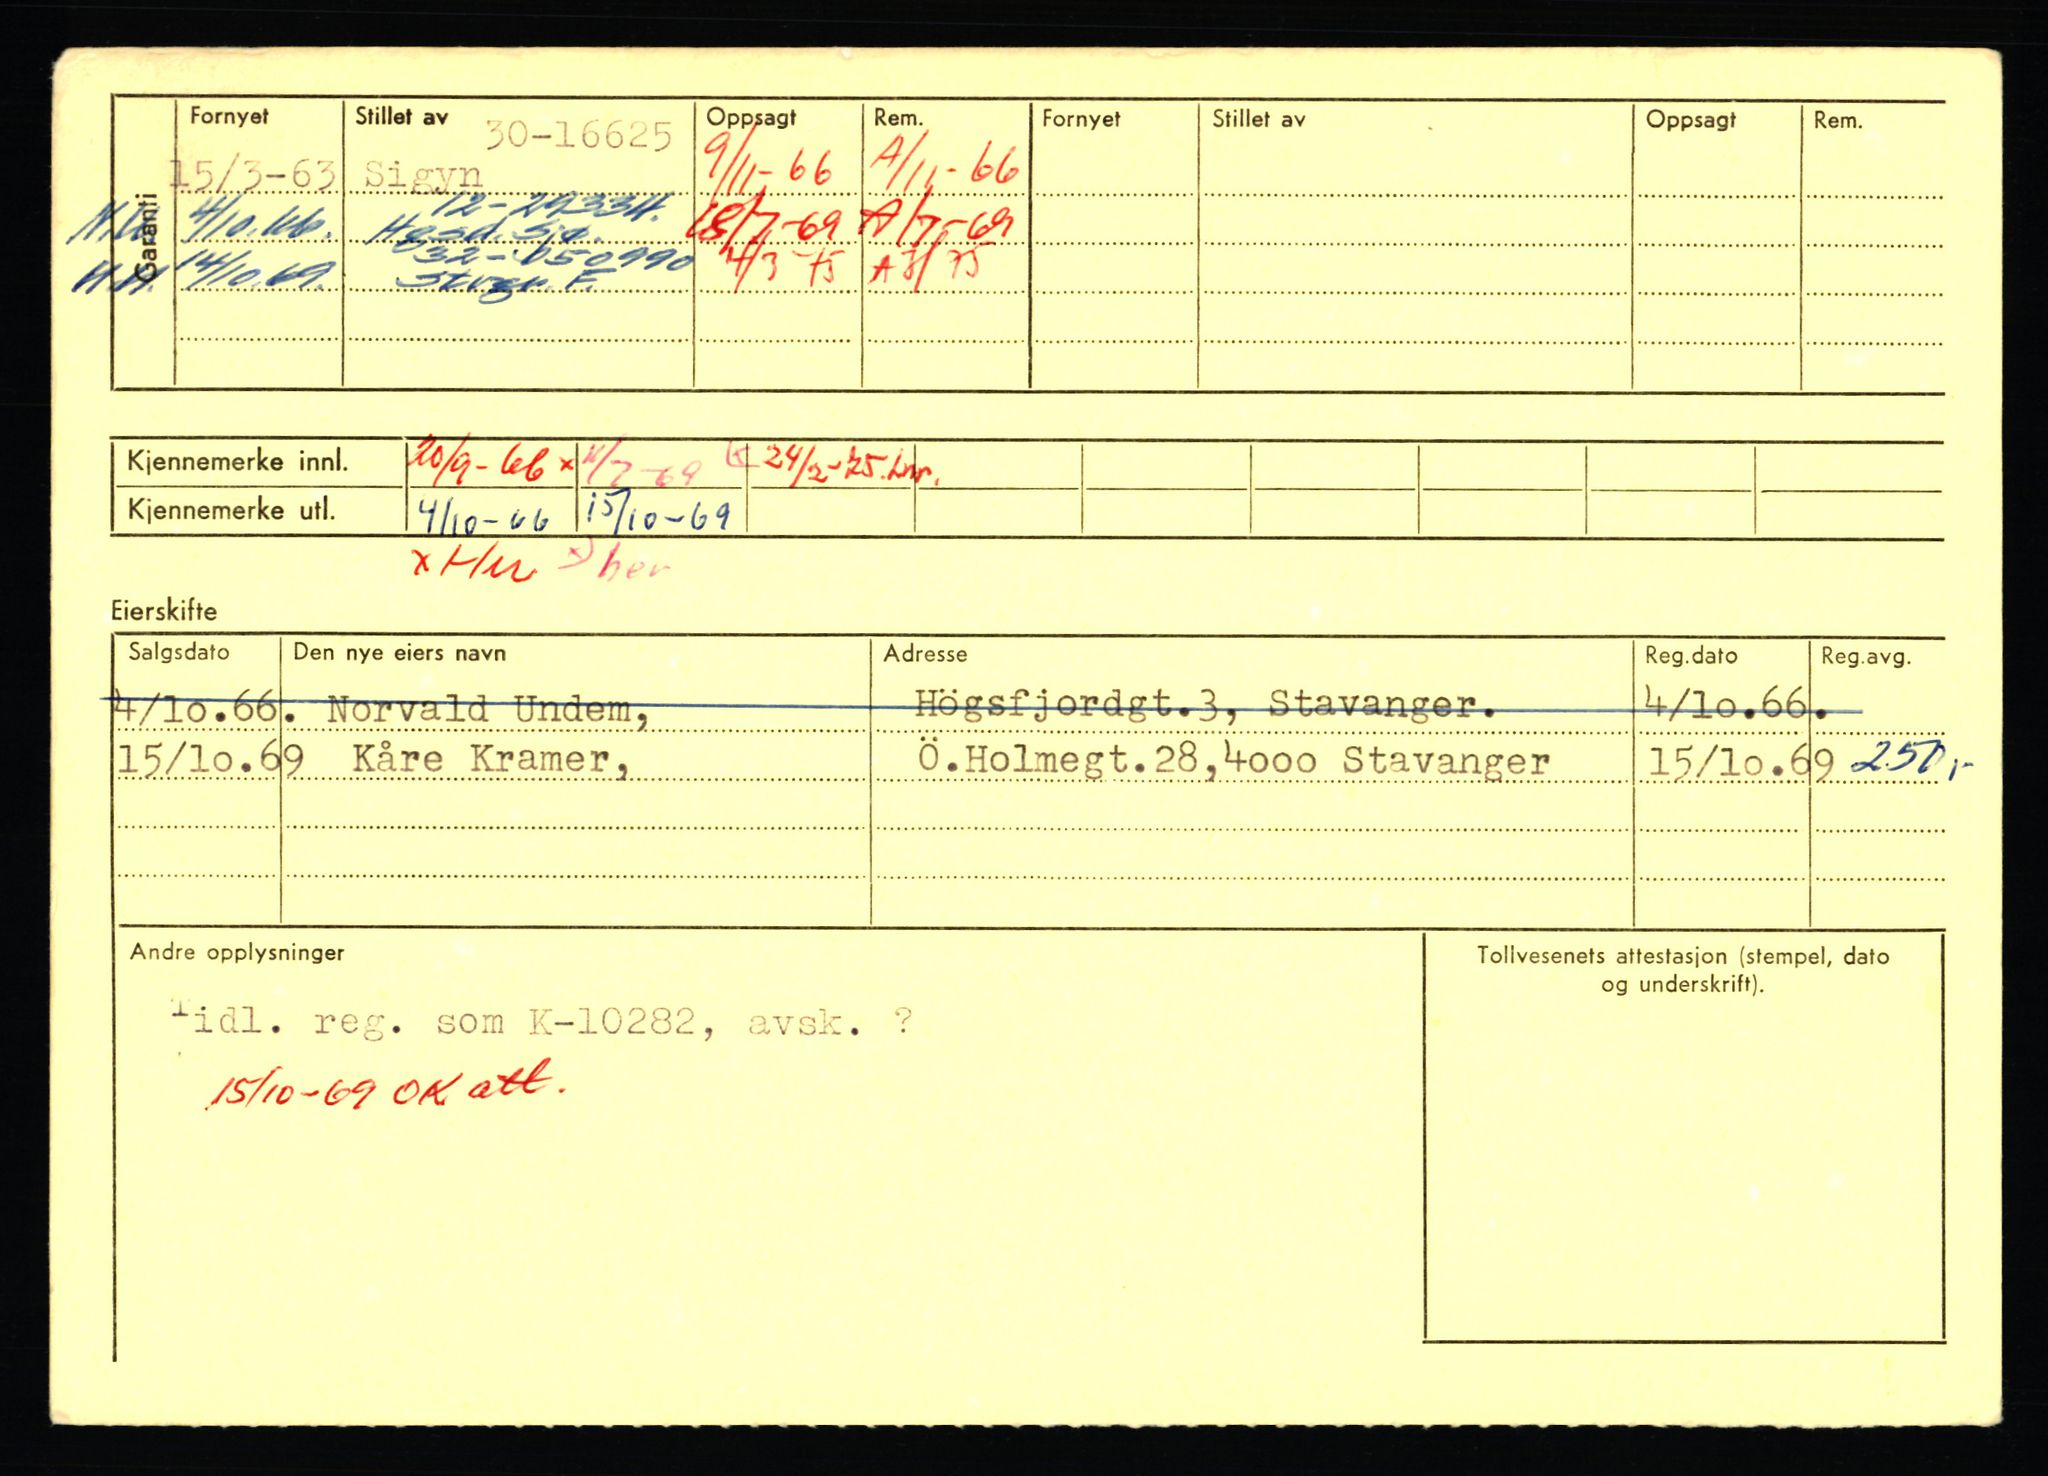 Garanti
Fornyet Stillet av Oppsagt Rem. Fornyet Stillet av Oppsagt Rem.
30-16625
15/3-63 Sigyn 9/11-66 A/11-66
12-29334.
4/10.66. Hesd. Sjø. 18/7-69 A/7-69
32-650990
14/10.69. 4/3 75
Kjennemerke innl. 20/9-66 x 24/2-75.
Kjennemerke utl. 4/10-66 15/10-69
x x) her
Eierskifte
Salgsdato Den nye eiers navn Adresse Reg.dato Reg.avg.
4/10.66. Norvald Undem, Högsfjordgt.3, Stavanger. 4/10.66.
15/10.69 Kåre Kramer, Ö.Holmegt.28,4000 Stavanger 15/10.69 250,-
Andre opplysninger
Tollvesenets attestasjon (stempel, dato
og underskrift).
Tidl. reg. som K-10282, avsk. ?
15/10-69 OK att.